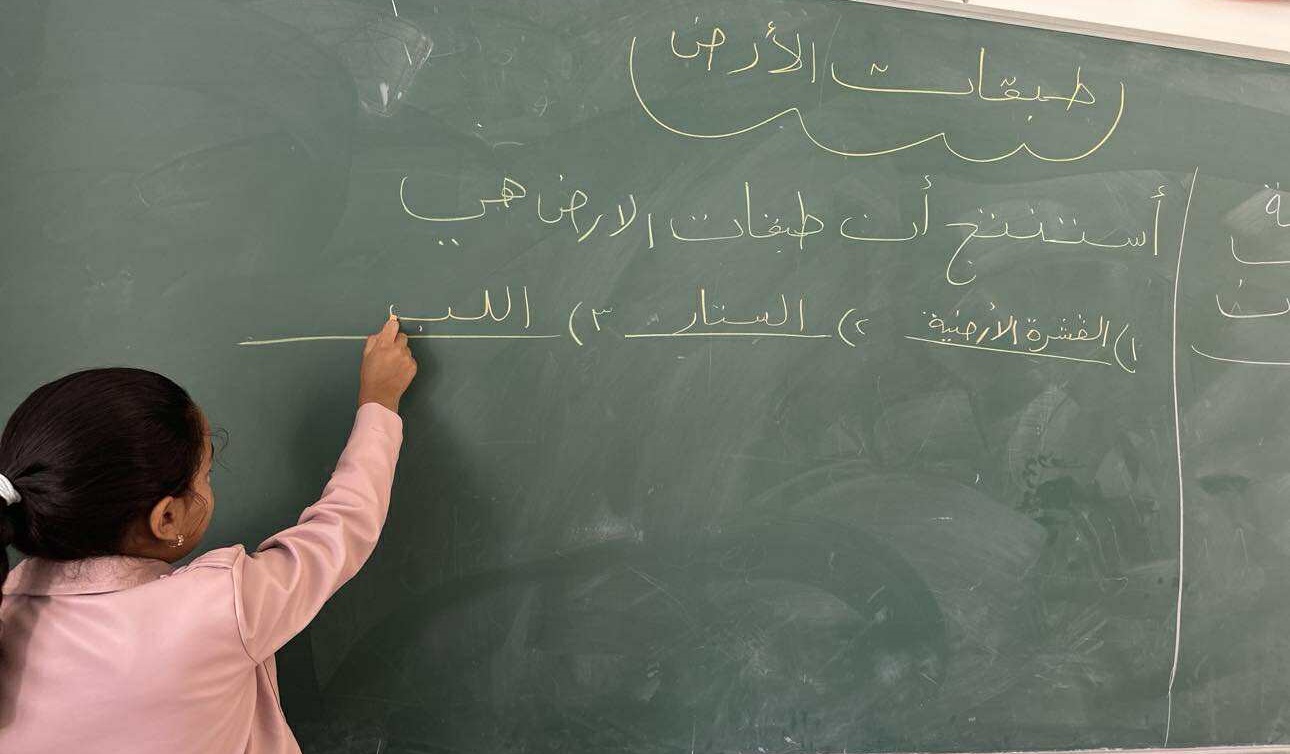 طبقات الأرض
أستنتج أن طبقات الارض هي
١) القشرة الارضية ٢) الستار ٣) اللب